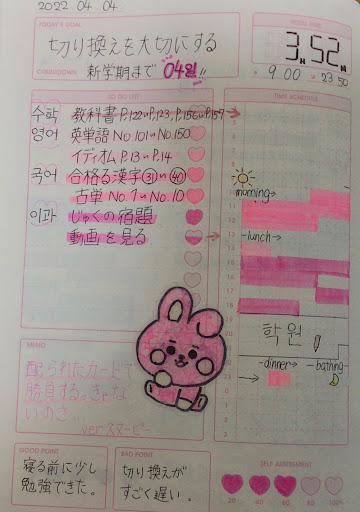 2022 04 04
TODAY'S GOAL
切り換えを大切にする
COUNTDOWN
新学期まで 04일!!
TOTAL TIME
3H 52M
9:00 ~ 23:50
TO DO LIST
TIME SCHEDULE
수학 教科書P.122~P.123, P.156~P.157
영어 英単語 No.101~No.150
イディオム P.13~P.14
국어 合格る漢字㉛~㊵
古単 No.1~No.10
이과 じゅくの宿題
動画を見る
morning→
-lunch→
학원
-dinner→
-bathing→
MEMO
配られたカードで
勝負するっきゃな
いのさ
ver.スヌーピー
GOOD POINT
寝る前に少し
勉強できた。
BAD POINT
切り換えが
すごく遅い。
SELF ASSESSMENT
20 40 60 80 100